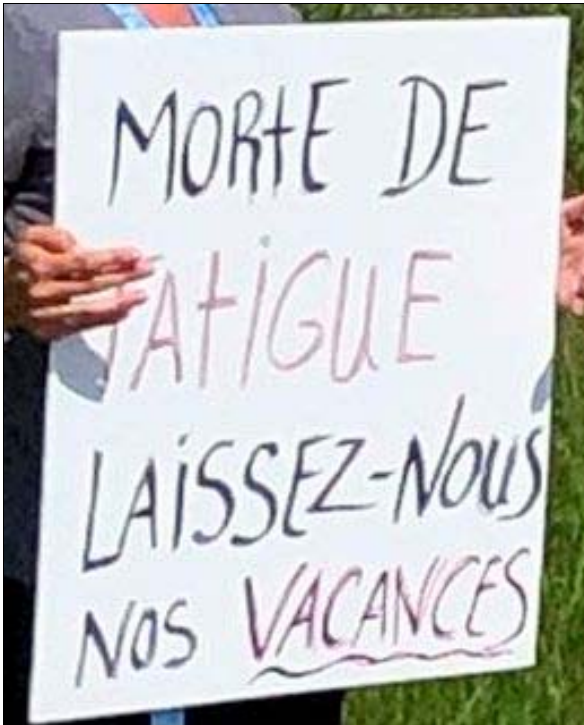 MORtE DE
FAtiGUE
LAiSSEZ-NOUS
NOS VACANCES